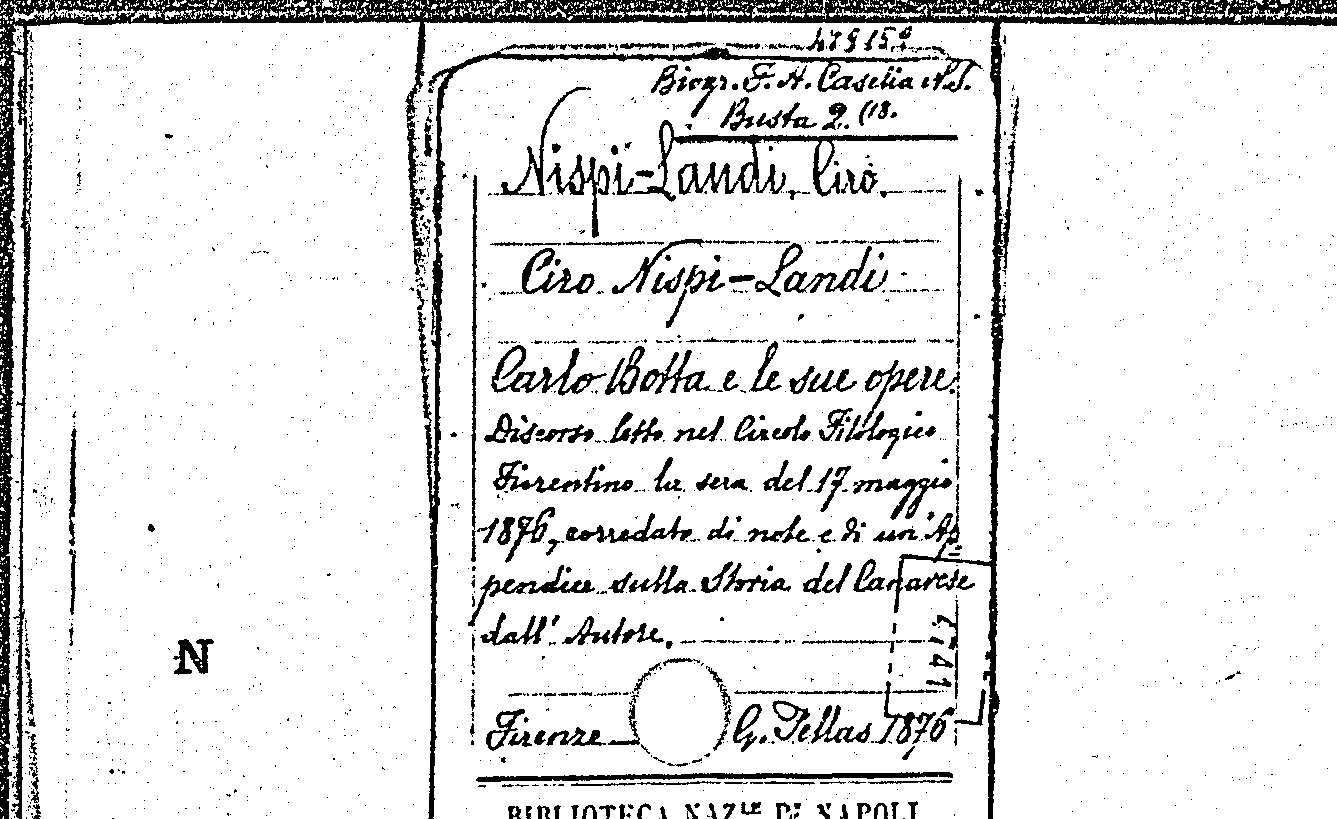 Biogr. F. A. Casella
Busta 2. (18.
Nispi-Landi, Ciro.
Ciro Nispi-Landi
Carlo Botta e le sue opere.
Discorso letto nel Circolo Filologico
Fiorentino la sera del 17 maggio
1876, corredato di note e di un' Ap=
pendice sulla Storia del Canavese
dall' Autore.
N
Firenze G. Pellas 1876
BIBLIOTECA NAZLE DI NAPOLI